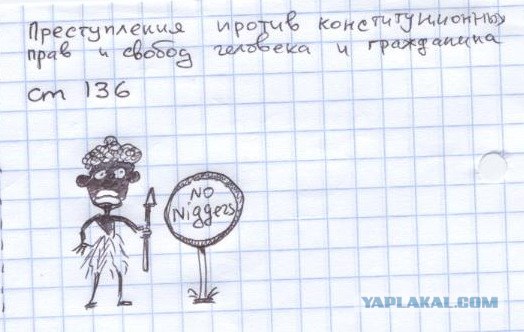 Преступления против конституционных
прав и свобод человека и гражданина
ст 136
NO
Niggers
YAPLAKAL.COM